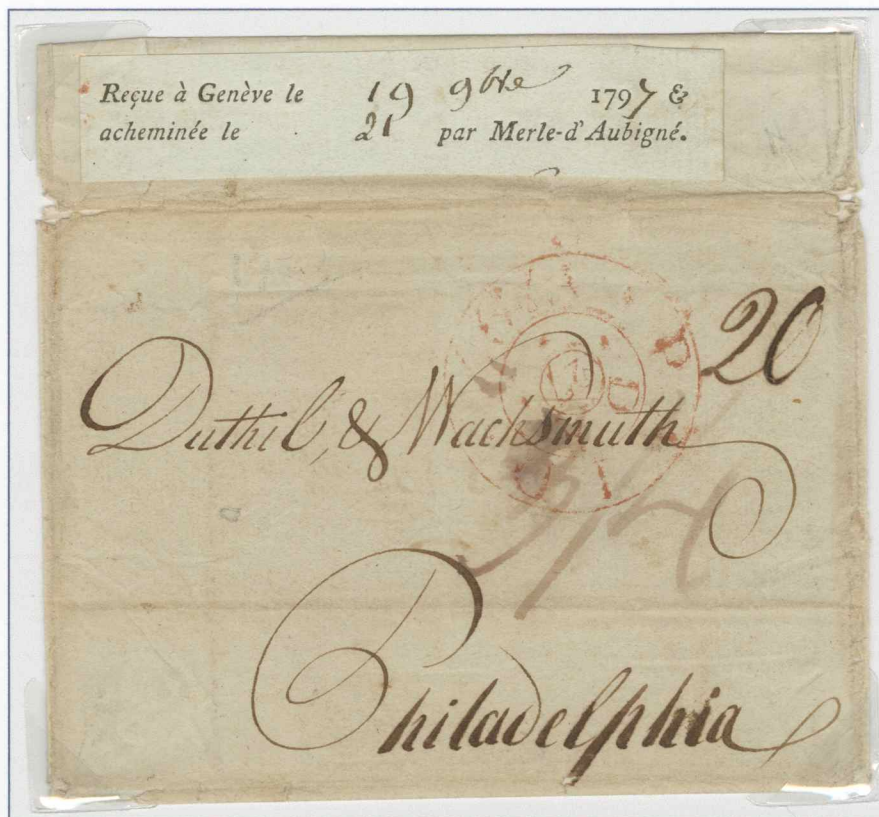 Reçue à Genève le 19 9bre 1797 &
acheminée le 21 par Merle-d'Aubigné.
20
Duthil, & Wachsmuth
Philadelphia